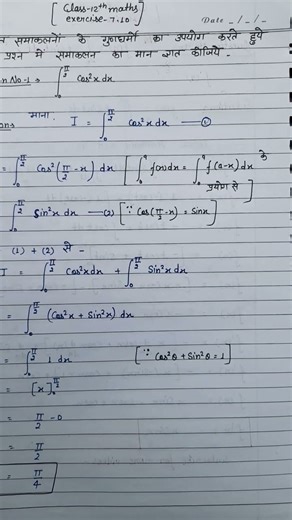 [ Class-12th maths
exercise-7.10 ]
Date _/_/_
समाकलनों के गुणधर्मों का उपयोग करते हुये
प्रश्न में समाकलन का मान ज्ञात कीजिये -
n No-1 → ∫₀^{π/2} Cos²x dx
माना, I = ∫₀^{π/2} Cos²x dx — ①
= ∫₀^{π/2} Cos²(π/2 - x) dx [ ∫₀^a f(x)dx = ∫₀^a f(a-x)dx के
प्रयोग से ]
∫₀^{π/2} Sin²x dx — (2) [ ∵ Cos(π/2 - x) = Sinx ]
(1) + (2) से -
I = ∫₀^{π/2} Cos²x dx + ∫₀^{π/2} Sin²x dx
= ∫₀^{π/2} (Cos²x + Sin²x) dx
= ∫₀^{π/2} 1 dx [ ∵ Cos²θ + Sin²θ = 1 ]
= [x]₀^{π/2}
= π/2 - 0
= π/2
= π/4